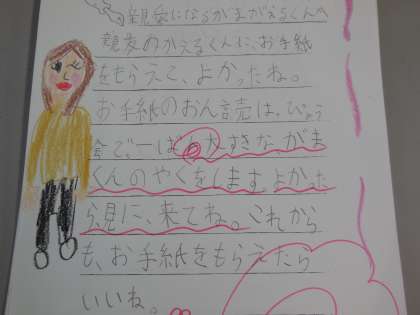 がまがえるくんへ
親友のかえるくんに、お手紙
をもらえて、よかったね。
お手紙のおん読は、ぴょう
会で、一ばん大すきな、がま
くんのやくをします。よかった
ら、見に、来てね。これから
も、お手紙をもらえたら
いいね。